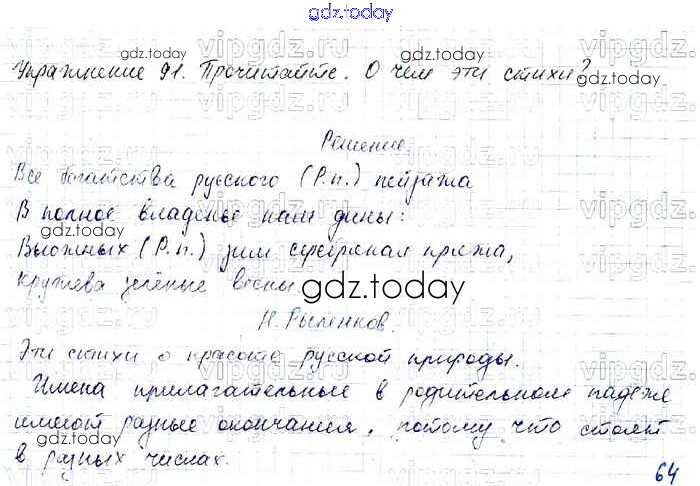 gdz.today
Упражнение 91. Прочитайте. О чём эти стихи?
Решение.
Все богатства русского (Р.п.) пейзажа
В полное владенье нам даны:
Вьюжных (Р.п.) зим серебряная пряжа,
Кружева зелёные весны
gdz.today
Н. Рыленков.
Эти стихи о красоте русской природы.
Имена прилагательные в родительном падеже
имеют разные окончания, потому что стоят
в разных числах.
64